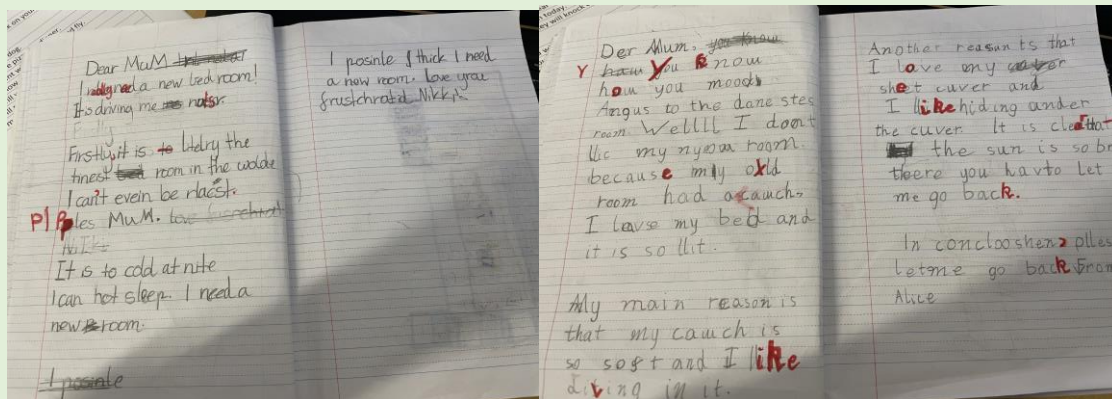 Dear MuM
I need a new bedroom!
It is driving me nuts.
Firstly it is litelry the
tinest room in the wolde
I can't evein be rlacst.
Pl Ples MuM.
Nikk
It is to cold at nite
I can not sleep. I need a
new room.
I posinle
I posinle I thick I need
a now room. Love you
frustchratid Nikki
Der Mum, you know
Y how You know
how you moods
Angus to the dane stes
room. Wellll I dont
lic my nyoow room.
because my old
room had a cauch.
I lovse my bed and
it is so llit.
My main reason is
that my cauch is
so soft and I like
diving in it.
Another reasun is that
I love my
shet cuver and
I like hiding under
the cuver. It is clear that
the sun is so br
there you havto let
me go back.
In conclooshen plles
let me go back from
Alice